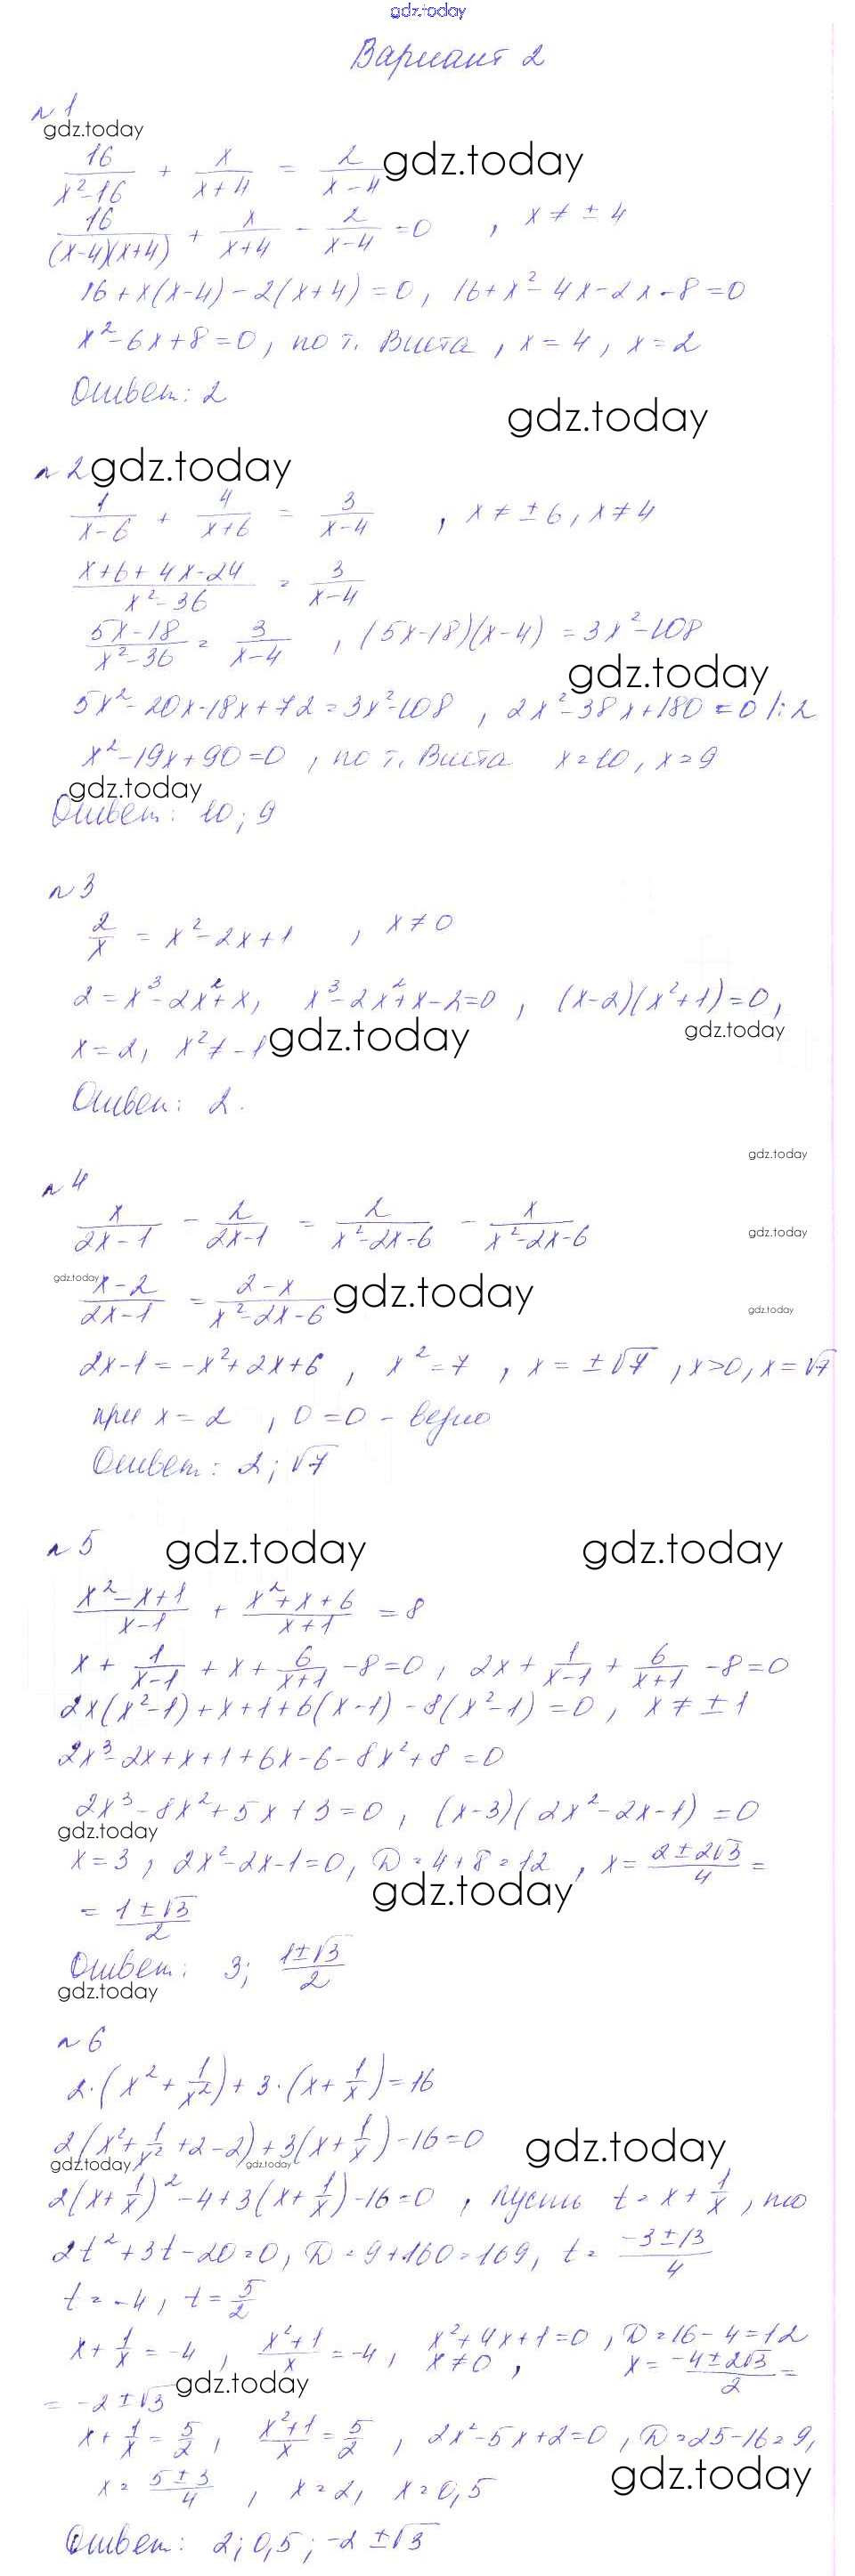 gdz.today
Вариант 2
№ 1
gdz.today
16/(x²-16) + x/(x+4) = 2/(x-4) gdz.today
16/((x-4)(x+4)) + x/(x+4) - 2/(x-4) = 0 , x ≠ ± 4
16+x(x-4) - 2(x+4) = 0, 16+x²-4x-2x-8=0
x²-6x+8=0, по т. Виета, x=4, x=2
Ответ: 2
gdz.today
№ 2 gdz.today
1/(x-6) + 4/(x+6) = 3/(x-4) , x ≠ ±6, x≠4
(x+6+4x-24)/(x²-36) = 3/(x-4)
(5x-18)/(x²-36) = 3/(x-4) , (5x-18)(x-4) = 3x²-108
gdz.today
5x²-20x-18x+72=3x²-108 , 2x²-38x+180=0 /:2
x²-19x+90=0 , по т. Виета x=10, x=9
gdz.today
Ответ: 10; 9
№ 3
2/x = x²-2x+1 , x≠0
2=x³-2x²+x, x³-2x²+x-2=0 , (x-2)(x²+1)=0,
x=2, x²≠-1 gdz.today gdz.today
Ответ: 2.
gdz.today
№ 4
x/(2x-1) - 2/(2x-1) = 2/(x²-2x-6) - x/(x²-2x-6) gdz.today
gdz.today (x-2)/(2x-1) = (2-x)/(x²-2x-6) gdz.today gdz.today
2x-1=-x²+2x+6 , x²=7 , x=±√7 , x>0, x=√7
при x=2 , 0=0 - верно
Ответ: 2; √7
№ 5 gdz.today gdz.today
(x²-x+1)/(x-1) + (x²+x+6)/(x+1) = 8
x + 1/(x-1) + x + 6/(x+1) - 8=0, 2x + 1/(x-1) + 6/(x+1) - 8=0
2x(x²-1)+x+1+6(x-1)-8(x²-1)=0, x≠±1
2x³-2x+x+1+6x-6-8x²+8=0
2x³-8x²+5x+3=0, (x-3)(2x²-2x-1)=0
gdz.today
x=3, 2x²-2x-1=0, D=4+8=12 , x=(2±2√3)/4 =
gdz.today
= (1±√3)/2
Ответ: 3; (1±√3)/2
gdz.today
№ 6
2·(x²+1/x²)+3·(x+1/x)=16
2(x²+1/x²+2-2)+3(x+1/x)-16=0 gdz.today
gdz.today gdz.today
2(x+1/x)²-4+3(x+1/x)-16=0 , пусть t=x+1/x , то
2t²+3t-20=0, D=9+160=169, t=(-3±13)/4
t=-4, t=5/2
x+1/x=-4 , (x²+1)/x=-4, x²+4x+1=0 , D=16-4=12
x≠0 , x=(-4±2√3)/2 =
= -2±√3 gdz.today
x+1/x=5/2 , (x²+1)/x=5/2 , 2x²-5x+2=0 , D=25-16=9,
x=(5±3)/4 , x=2, x=0,5 gdz.today
Ответ: 2; 0,5; -2±√3